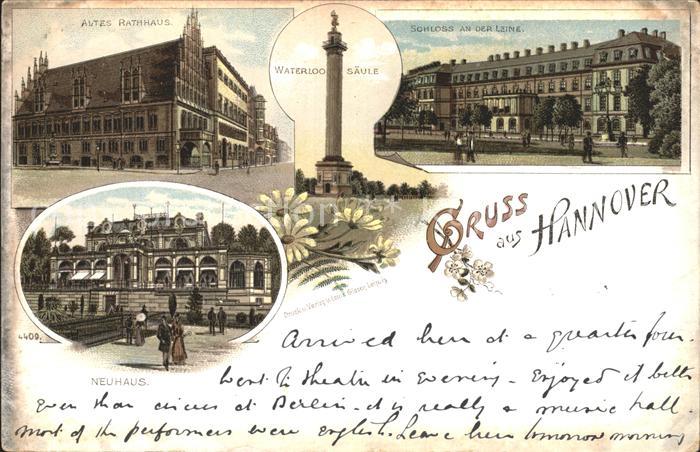 ALTES RATHHAUS.
WATERLOO SÄULE
SCHLOSS AN DER LEINE.
GRUSS aus HANNOVER
Druck u. Verlag v. Louis Glaser, Leipzig
4409.
NEUHAUS.
Arrived here at a quarter four.
Went to theatre in evening - Enjoyed it better
even than circus at Berlin - it is really a music hall.
most of the performers were english. Leave here tomorrow morning